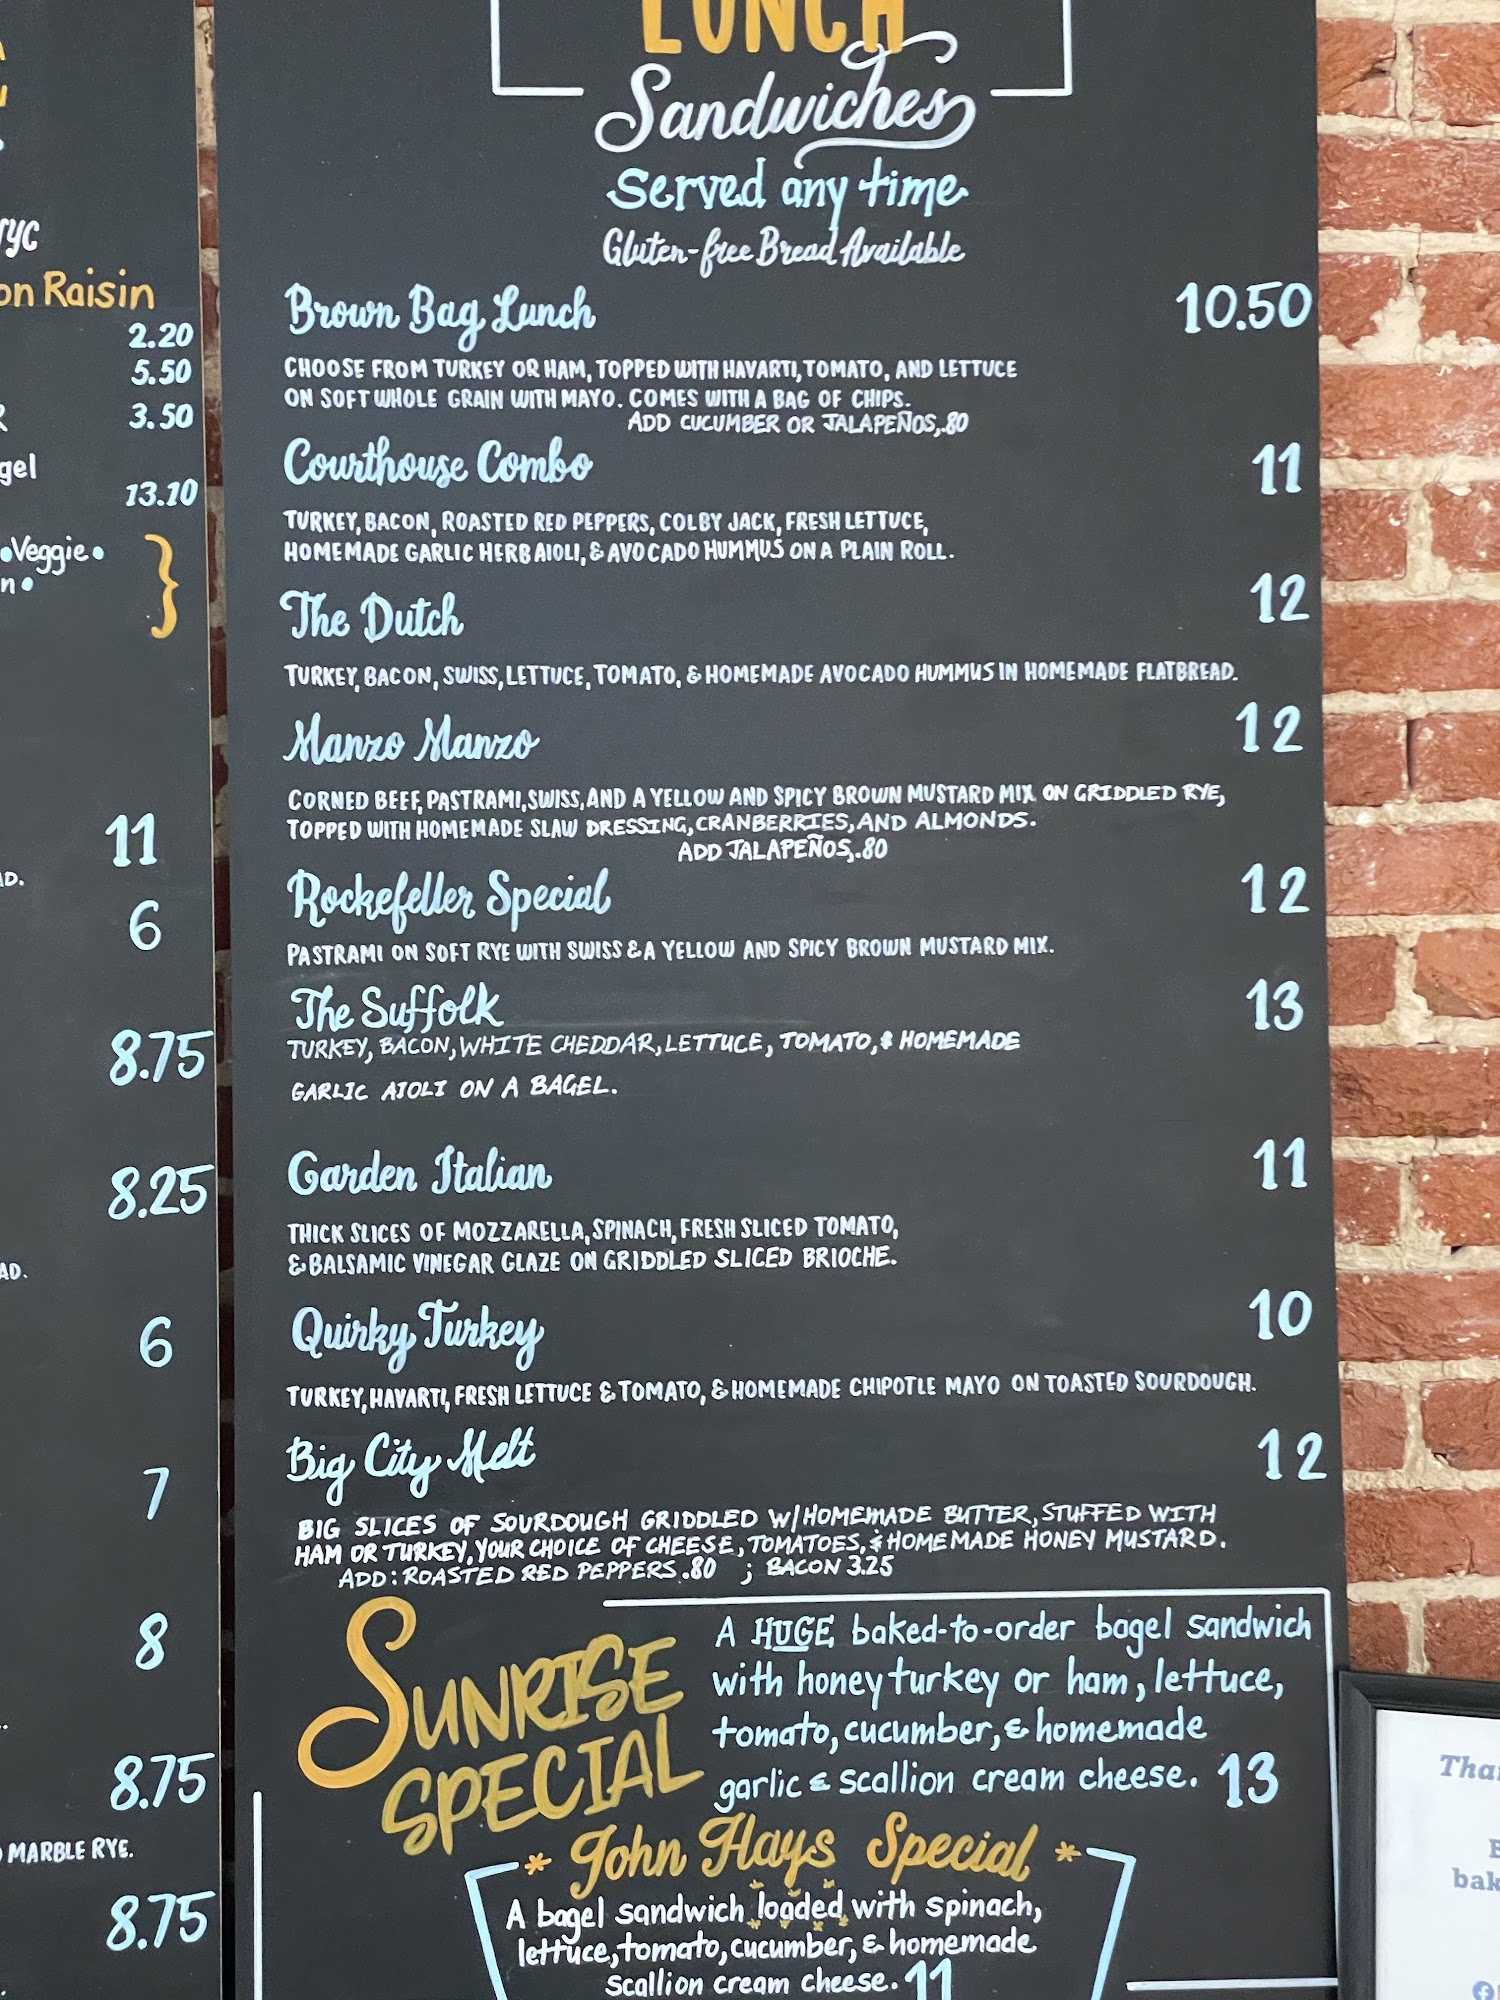 on Raisin
2.20
5.50
3.50
13.10
•Veggie•
11
6
8.75
8.25
6
7
8
8.75
MARBLE RYE.
8.75
LUNCH
Sandwiches
Served any time
Gluten-free Bread Available
Brown Bag Lunch 10.50
CHOOSE FROM TURKEY OR HAM, TOPPED WITH HAVARTI, TOMATO, AND LETTUCE
ON SOFT WHOLE GRAIN WITH MAYO. COMES WITH A BAG OF CHIPS.
ADD CUCUMBER OR JALAPEÑOS, .80
Courthouse Combo 11
TURKEY, BACON, ROASTED RED PEPPERS, COLBY JACK, FRESH LETTUCE,
HOMEMADE GARLIC HERB AIOLI, & AVOCADO HUMMUS ON A PLAIN ROLL.
The Dutch 12
TURKEY, BACON, SWISS, LETTUCE, TOMATO, & HOMEMADE AVOCADO HUMMUS IN HOMEMADE FLATBREAD.
Manzo Manzo 12
CORNED BEEF, PASTRAMI, SWISS, AND A YELLOW AND SPICY BROWN MUSTARD MIX ON GRIDDLED RYE,
TOPPED WITH HOMEMADE SLAW DRESSING, CRANBERRIES, AND ALMONDS.
ADD JALAPEÑOS, .80
Rockefeller Special 12
PASTRAMI ON SOFT RYE WITH SWISS & A YELLOW AND SPICY BROWN MUSTARD MIX.
The Suffolk 13
TURKEY, BACON, WHITE CHEDDAR, LETTUCE, TOMATO, & HOMEMADE
GARLIC AIOLI ON A BAGEL.
Garden Italian 11
THICK SLICES OF MOZZARELLA, SPINACH, FRESH SLICED TOMATO,
& BALSAMIC VINEGAR GLAZE ON GRIDDLED SLICED BRIOCHE.
Quirky Turkey 10
TURKEY, HAVARTI, FRESH LETTUCE & TOMATO, & HOMEMADE CHIPOTLE MAYO ON TOASTED SOURDOUGH.
Big City Melt 12
BIG SLICES OF SOURDOUGH GRIDDLED W/HOMEMADE BUTTER, STUFFED WITH
HAM OR TURKEY, YOUR CHOICE OF CHEESE, TOMATOES, & HOMEMADE HONEY MUSTARD.
ADD: ROASTED RED PEPPERS .80 ; BACON 3.25
SUNRISE
SPECIAL
A HUGE baked-to-order bagel sandwich
with honey turkey or ham, lettuce,
tomato, cucumber, & homemade
garlic & scallion cream cheese. 13
* John Hays Special *
A bagel sandwich loaded with spinach,
lettuce, tomato, cucumber, & homemade
scallion cream cheese. 11